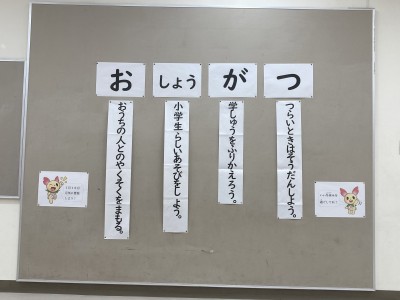 お しょう が つ
おうちの人とのやくそくをまもる。
小学生らしいあそびをしよう。
学しゅうをふりかえろう。
つらいときはそうだんしよう。